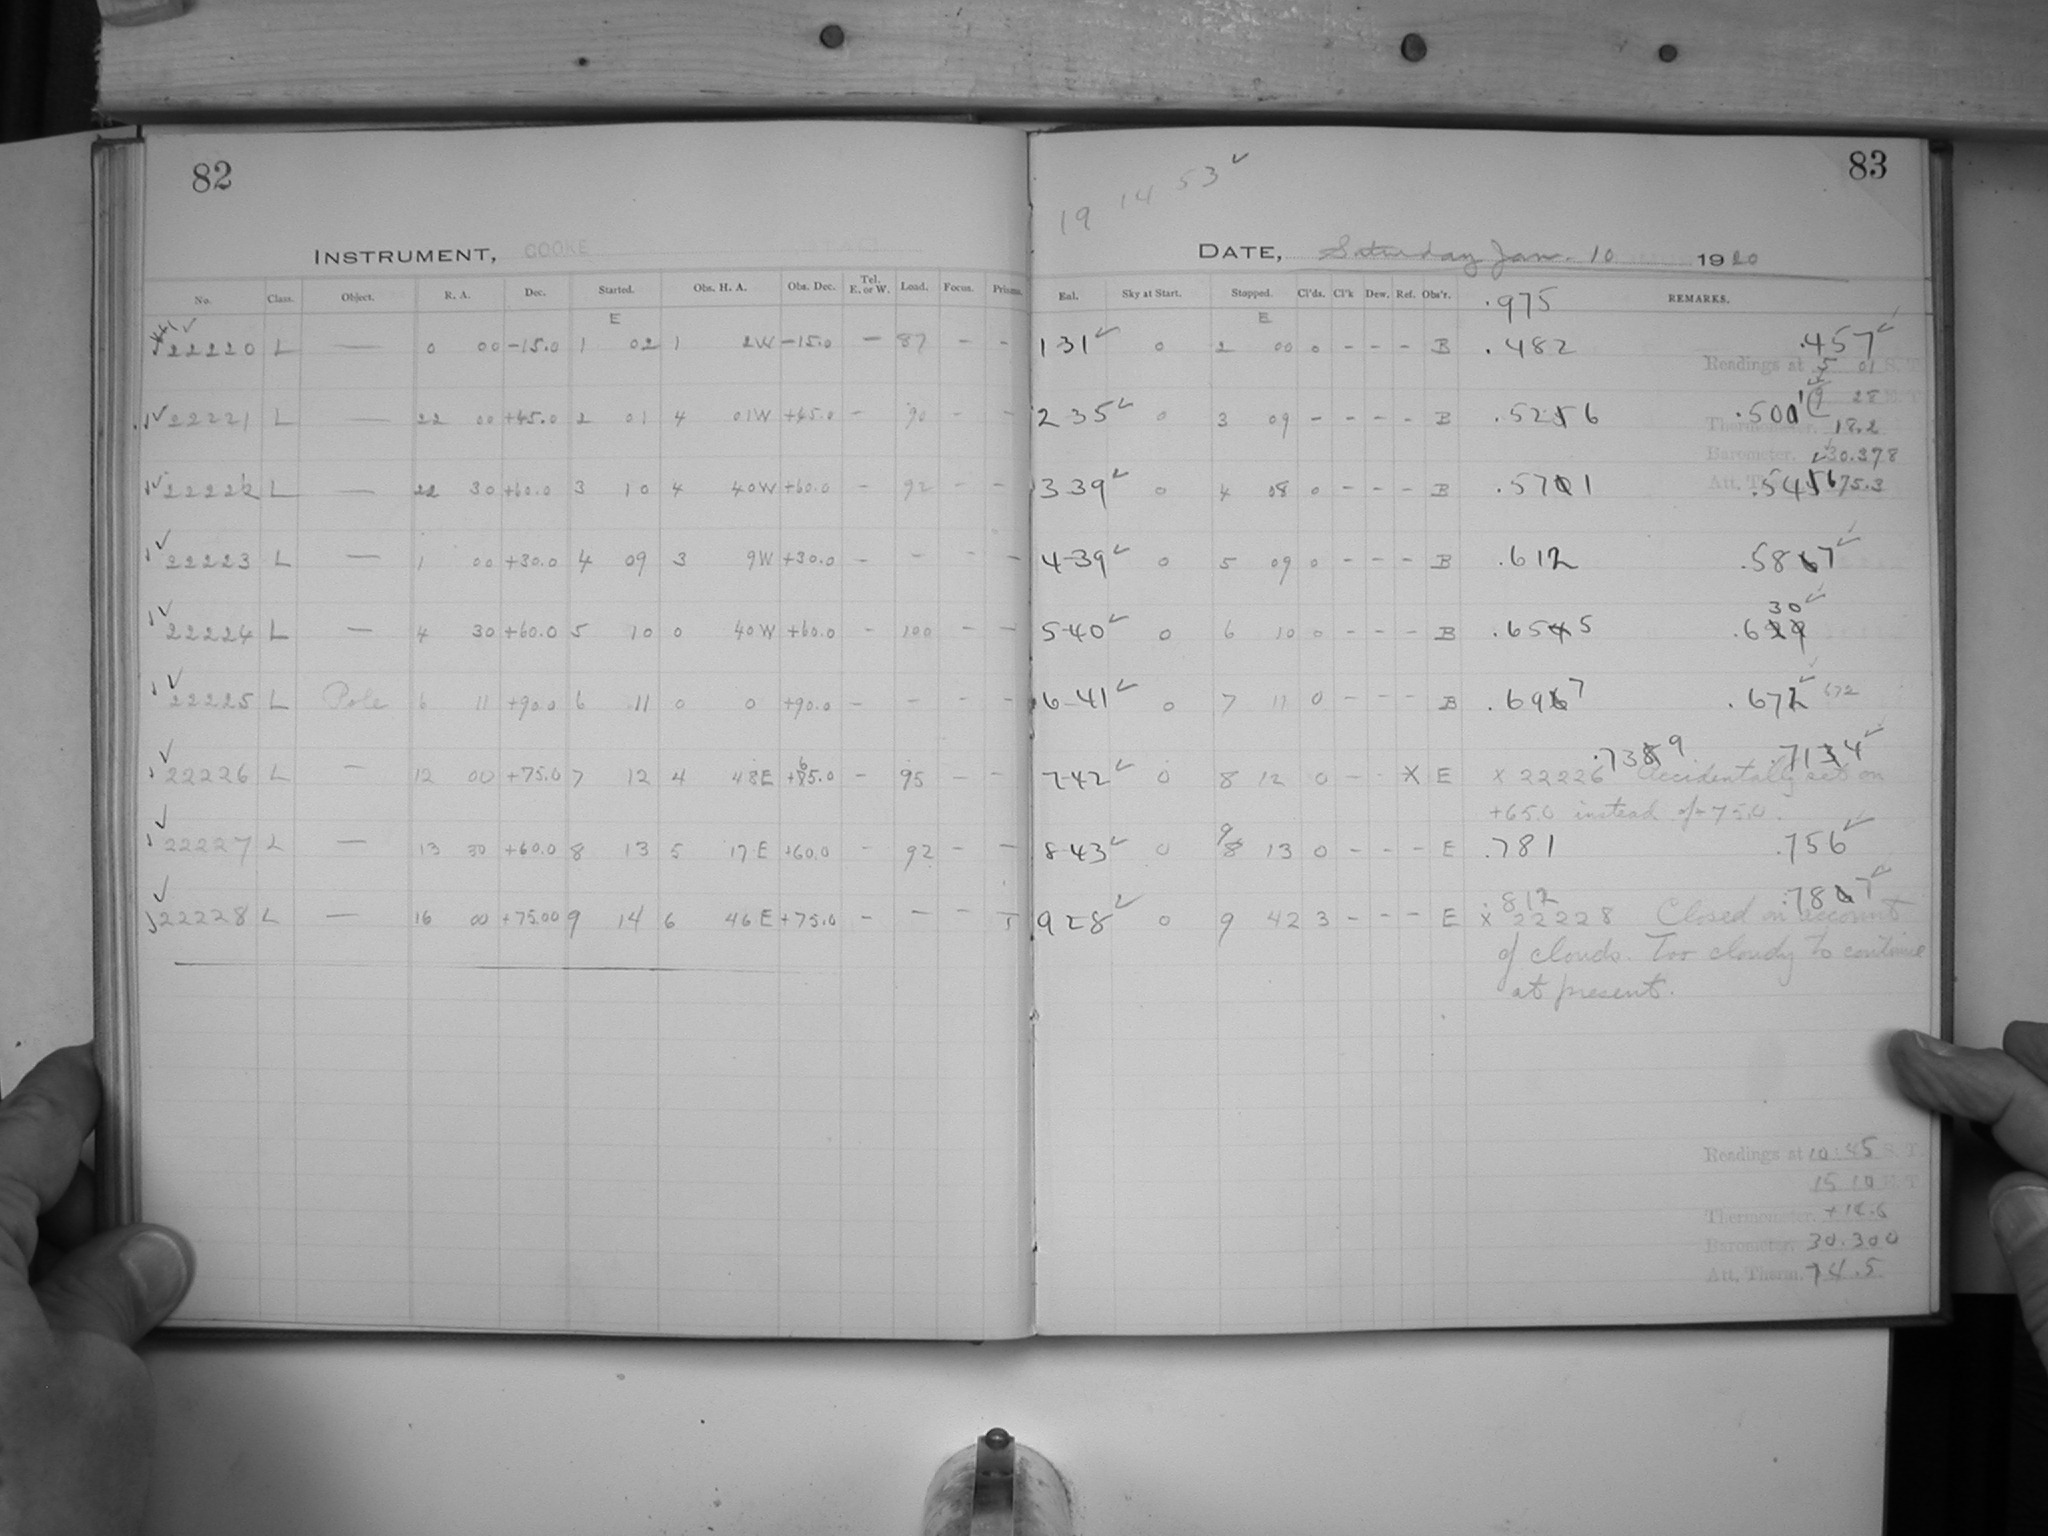 82
INSTRUMENT, COOKE
No. Class. Object. R. A. Dec. Started. Obs. H. A. Obs. Dec. Tel. E. or W. Load. Focus. Prisms.
E
22220 L — 0 00 -15.0 1 02 1 2W -15.0 - 87 - -
22221 L — 22 00 +45.0 2 01 4 01W +45.0 - 90 - -
22222 L — 22 30 +60.0 3 10 4 40W +60.0 - 92 - -
22223 L — 1 00 +30.0 4 09 3 9W +30.0 - - - -
22224 L — 4 30 +60.0 5 10 0 40W +60.0 - 100 - -
22225 L Pole 6 11 +90.0 6 11 0 0 +90.0 - - - -
22226 L — 12 00 +75.0 7 12 4 48E +65.0 - 95 - -
22227 L — 13 30 +60.0 8 13 5 17 E +60.0 - 92 - -
22228 L — 16 00 +75.00 9 14 6 46 E +75.0 - - -
83
19 14 53
DATE, Saturday Jan. 10 1920
Eal. Sky at Start. Stopped. Cl'ds. Cl'k Dew. Ref. Obs'r. REMARKS.
.975
E
131 0 2 00 0 - - - B .482 .457
Readings at 5 01 S. T.
9 28 E. T.
235 0 3 09 - - - - B .526 .501
Thermometer, 18.2
Barometer, 30.378
339 0 4 08 0 - - - B .571 .546
Att. Therm. 75.3
4-39 0 5 09 0 - - - B .612 .587
5-40 0 6 10 0 - - - B .655 .630
6-41 0 7 11 0 - - - B .697 .672 672
.739 .714
7-42 0 8 12 0 - - X E x 22226 Accidentally set on
+65.0 instead of +75.0.
8-43 0 9 13 0 - - - E .781 .756
.812 .787
928 0 9 42 3 - - - E x 22228 Closed on account
of clouds. Too cloudy to continue
at present.
Readings at 10:45 S. T.
15 10 E. T.
Thermometer, +18.6
Barometer, 30.300
Att. Therm. 74.5